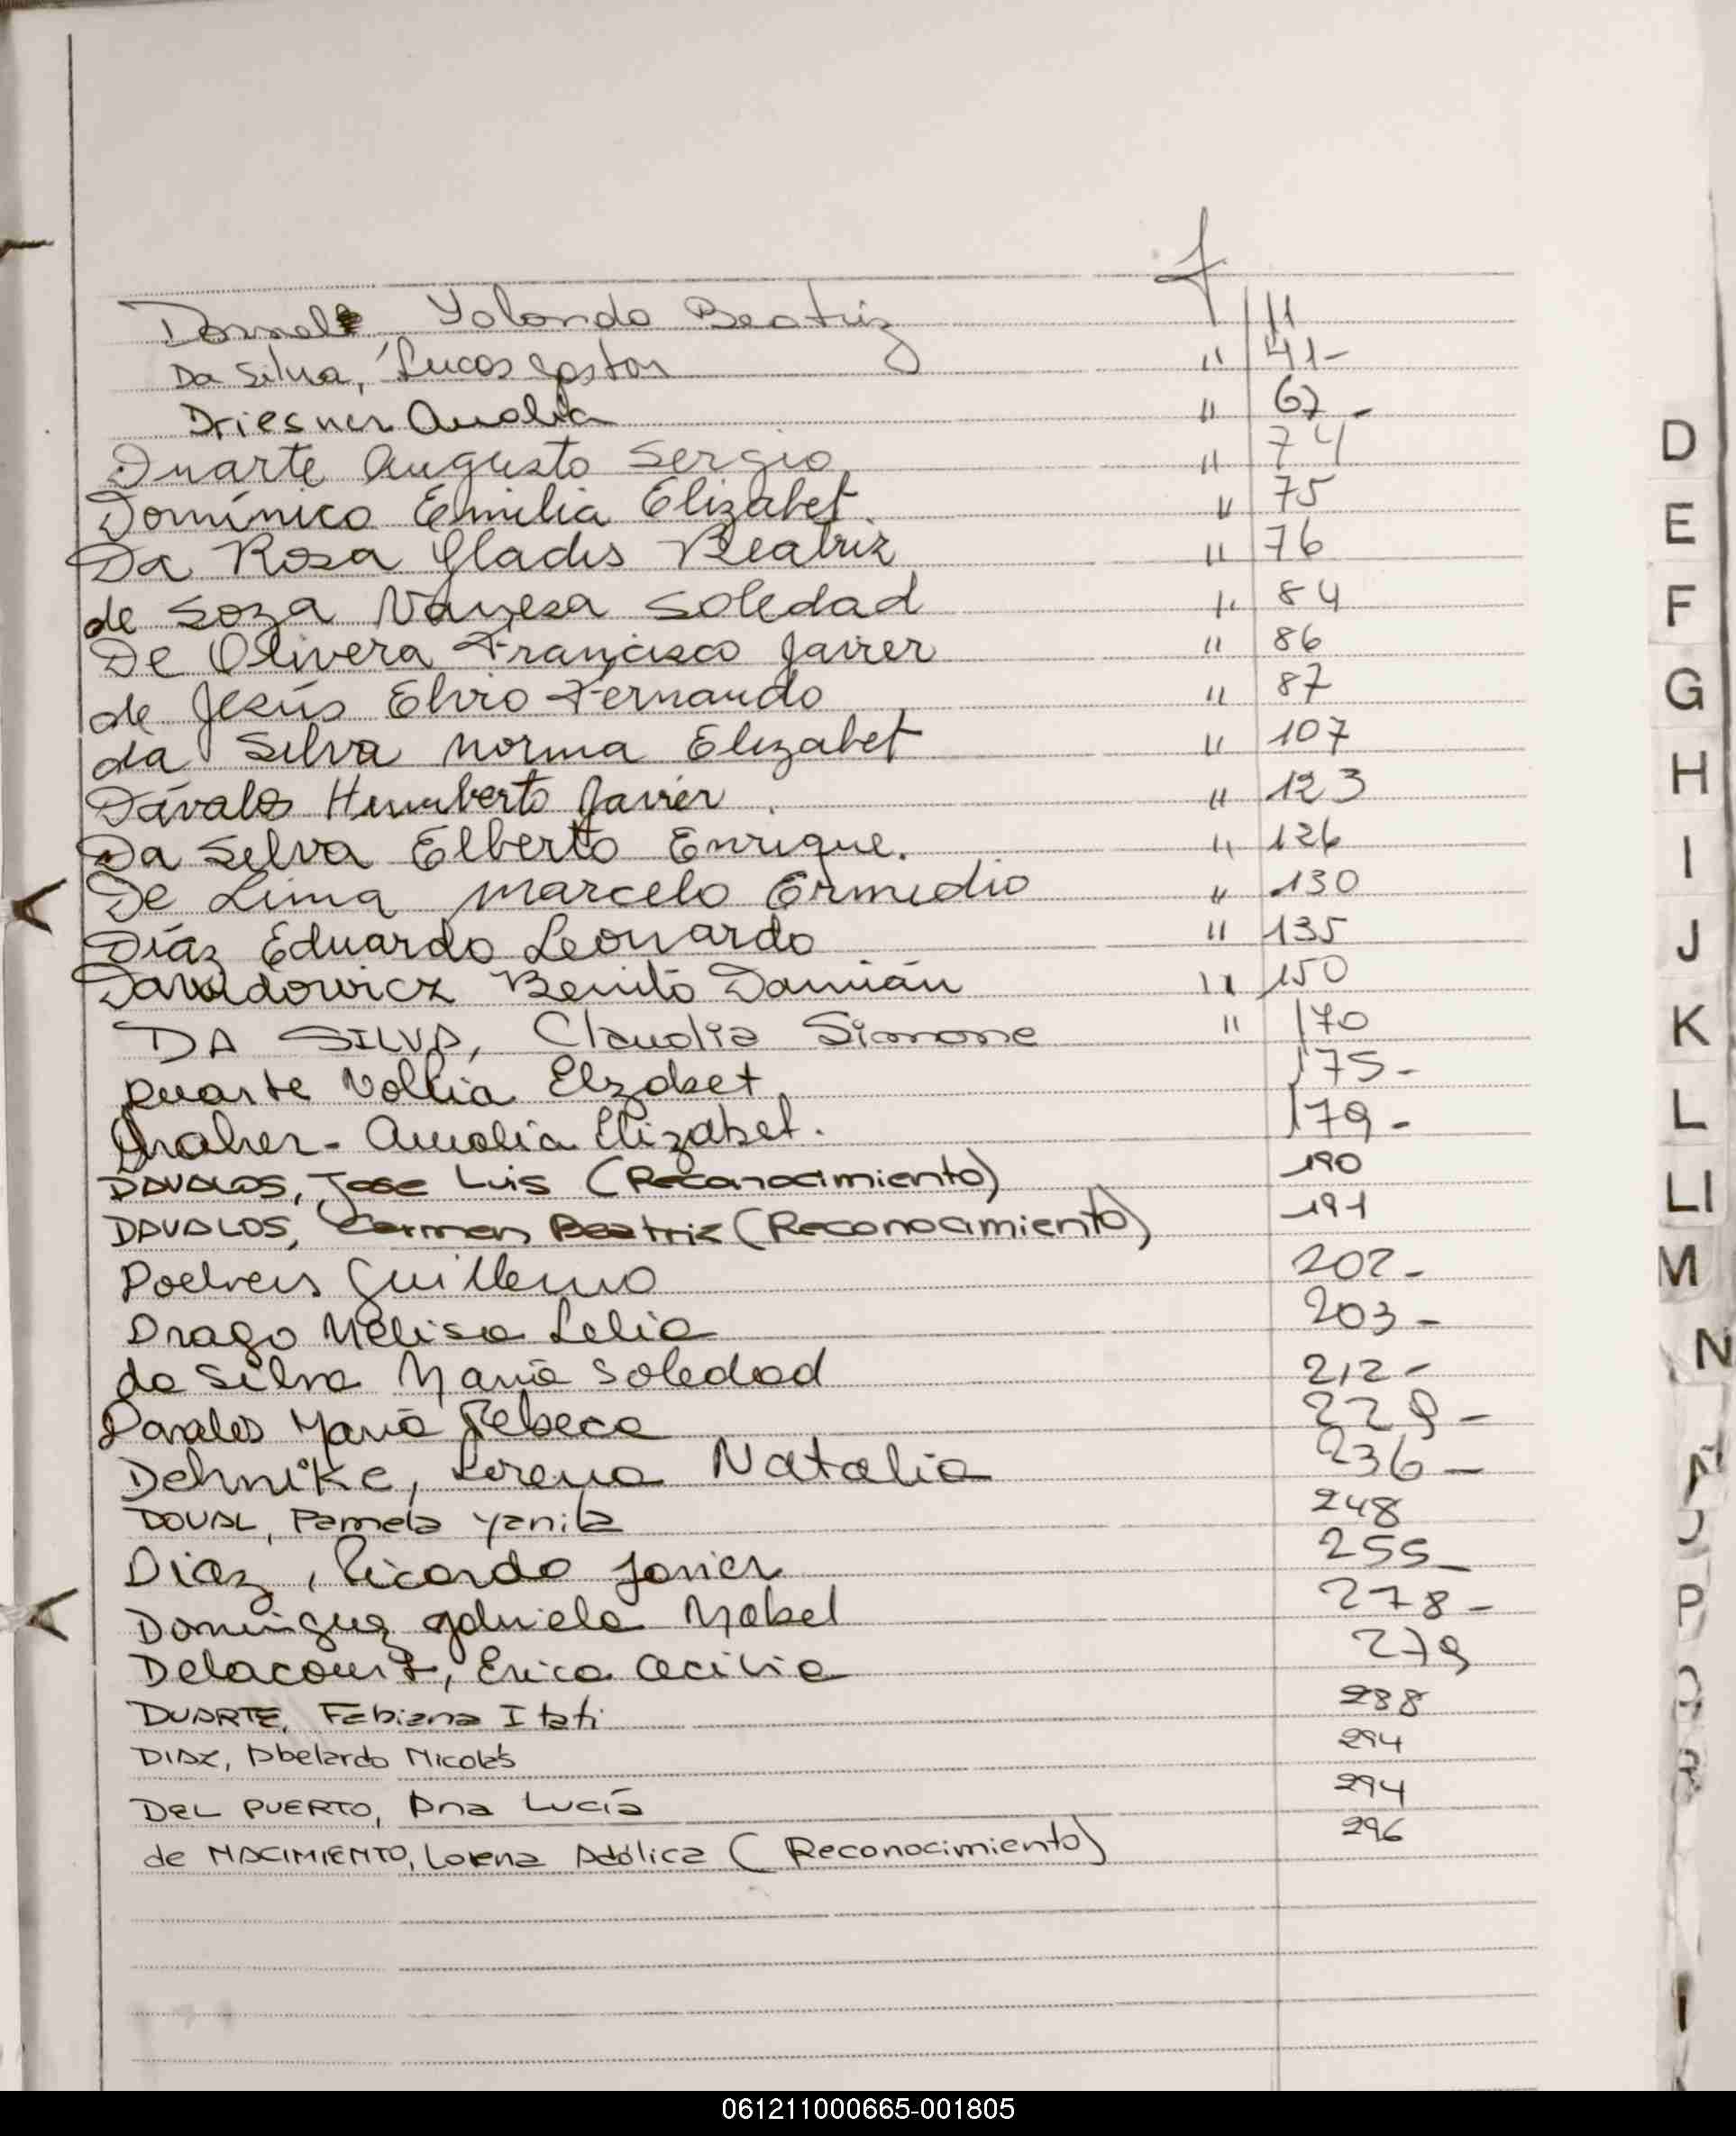 Dornele, Yolanda Beatriz f 11
Da Silva, Lucas Gaston " 41-
Driesner Analia " 67-
Duarte Augusto Sergio " 74
Domínico Emilia Elizabet. " 75
Da Rosa Gladis Beatriz " 76
de Soza Vanesa Soledad " 84
De Olivera Francisco Javier " 86
de Jesús Elvio Fernando " 87
da Silva Norma Elizabet " 107
Dávalos Humberto Javier. " 123
Da Silva Elberto Enrique. " 126
De Lima Marcelo Ermedio " 130
Díaz Eduardo Leonardo " 135
Davidowicz Benito Damián " 150
DA SILVA, Claudia Simone " 170
Duarte Elzabet 175-
Amalia Elizabet. 179-
DAVALOS, Jose Luis (Reconocimiento) 190
DAVALOS, Carmen Beatriz (Reconocimiento) 191
Guillermo 202-
Drago Melisa Lelia 203-
da Silva María Soledad 212-
Davalos María Rebeca 229-
Dehnike, Lorena Natalia 236-
DOVAL, Pamela Yanila 248
Diaz, Ricardo Javier 255-
Dominguez Gabriela Mabel 278-
Delacourt, Erica Cecilia 279
DUARTE, Fabiana Itati 288
DIAZ, Abelardo Nicolás 294
DEL PUERTO, Ana Lucía 294
de NACIMIENTO, Lorena Adólica (Reconocimiento) 296
D
E
F
G
H
I
J
K
L
LI
M
N
P
061211000665-001805